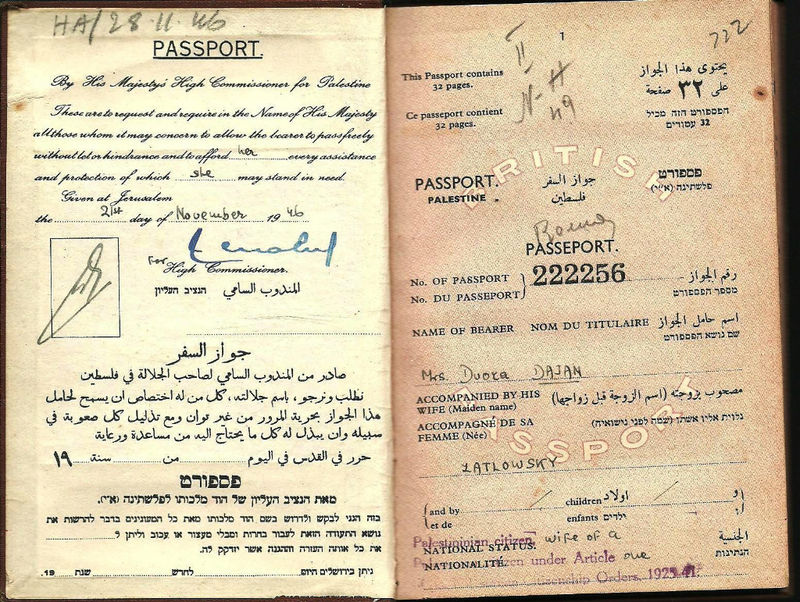 HA/28.11.46
PASSPORT.
By His Majesty's High Commissioner for Palestine
These are to request and require in the Name of His Majesty
all those whom it may concern to allow the bearer to pass freely
without let or hindrance and to afford her every assistance
and protection of which she may stand in need.
Given at Jerusalem
the 21st day of November 1946
For High Commissioner.
المندوب السامي הנציב העליון
جواز السفر
صادر من المندوب السامي لصاحب الجلالة في فلسطين
نطلب ونرجو، باسم جلالته، كل من له اختصاص ان يسمح لحامل
هذا الجواز بحرية المرور من غير توان ومع تذليل كل صعوبة في
سبيله وان يبذل له كل ما يحتاج اليه من مساعدة ورعاية
حرر في القدس في اليوم من سنة ١٩
פספורט
מאת הנציב העליון של הוד מלכותו לפלשתינה (א״י).
בזה הנני לבקש ולדרוש בשם הוד מלכותו מאת כל המעונינים בדבר להרשות את
נושא התעודה הזאת לעבור בחרות ומבלי מעצור או עכוב וליתן ל
את כל אותה העזרה וההגנה אשר יזדקק לה.
ניתן בירושלים היום לחדש שנת 19
1
722
II
N-H
49
This Passport contains
32 pages.
يحتوى هذا الجواز
على ٣٢ صفحة
Ce passeport contient
32 pages.
הפספורט הזה מכיל
32 עמודים
BRITISH
PASSPORT. جواز السفر פספורט
PALESTINE فلسطين פלשתינה (א״י)
PASSEPORT.
No. OF PASSPORT
No. DU PASSEPORT
222256
رقم الجواز
מספר הפספורט
NAME OF BEARER NOM DU TITULAIRE اسم حامل الجواز
שם נושא הפספורט
Mrs. Dvora DAJAN
ACCOMPANIED BY HIS
WIFE (Maiden name)
مصحوب بزوجته (اسم الزوجة قبل زواجها)
ACCOMPAGNÉ DE SA
FEMME (Née)
נלוית אליו אשתו (שמה לפני נישואיה)
PASSPORT
ZATLOWSKY
and by children اولاد و
et de enfants ילדים ו
Palestinian citizen, wife of a
NATIONAL STATUS. الجنسية
citizen under Article one
NATIONALITÉ הנתינות
Citizenship Orders, 1925-41.